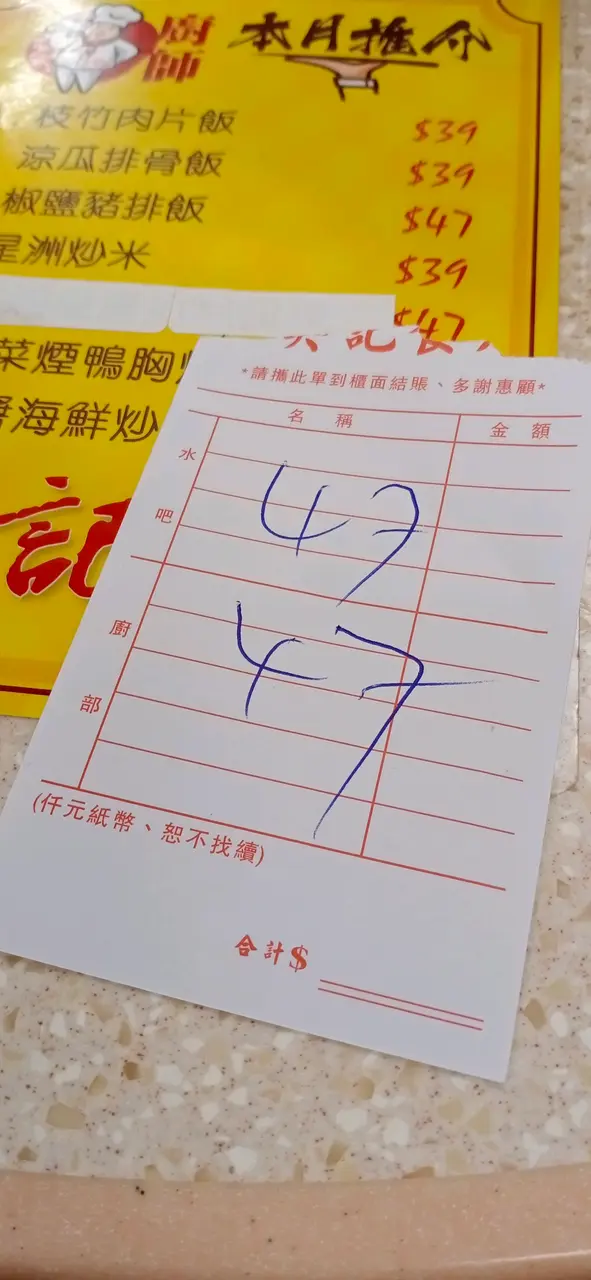 廚師 本月推介
枝竹肉片飯 $39
涼瓜排骨飯 $39
椒鹽豬排飯 $47
星洲炒米 $39
$47
菜煙鴨胸
醬海鮮炒
記
記
*請攜此單到櫃面結賬、多謝惠顧*
名稱 金額
水吧
47
廚部
47
(仟元紙幣、恕不找續)
合計$